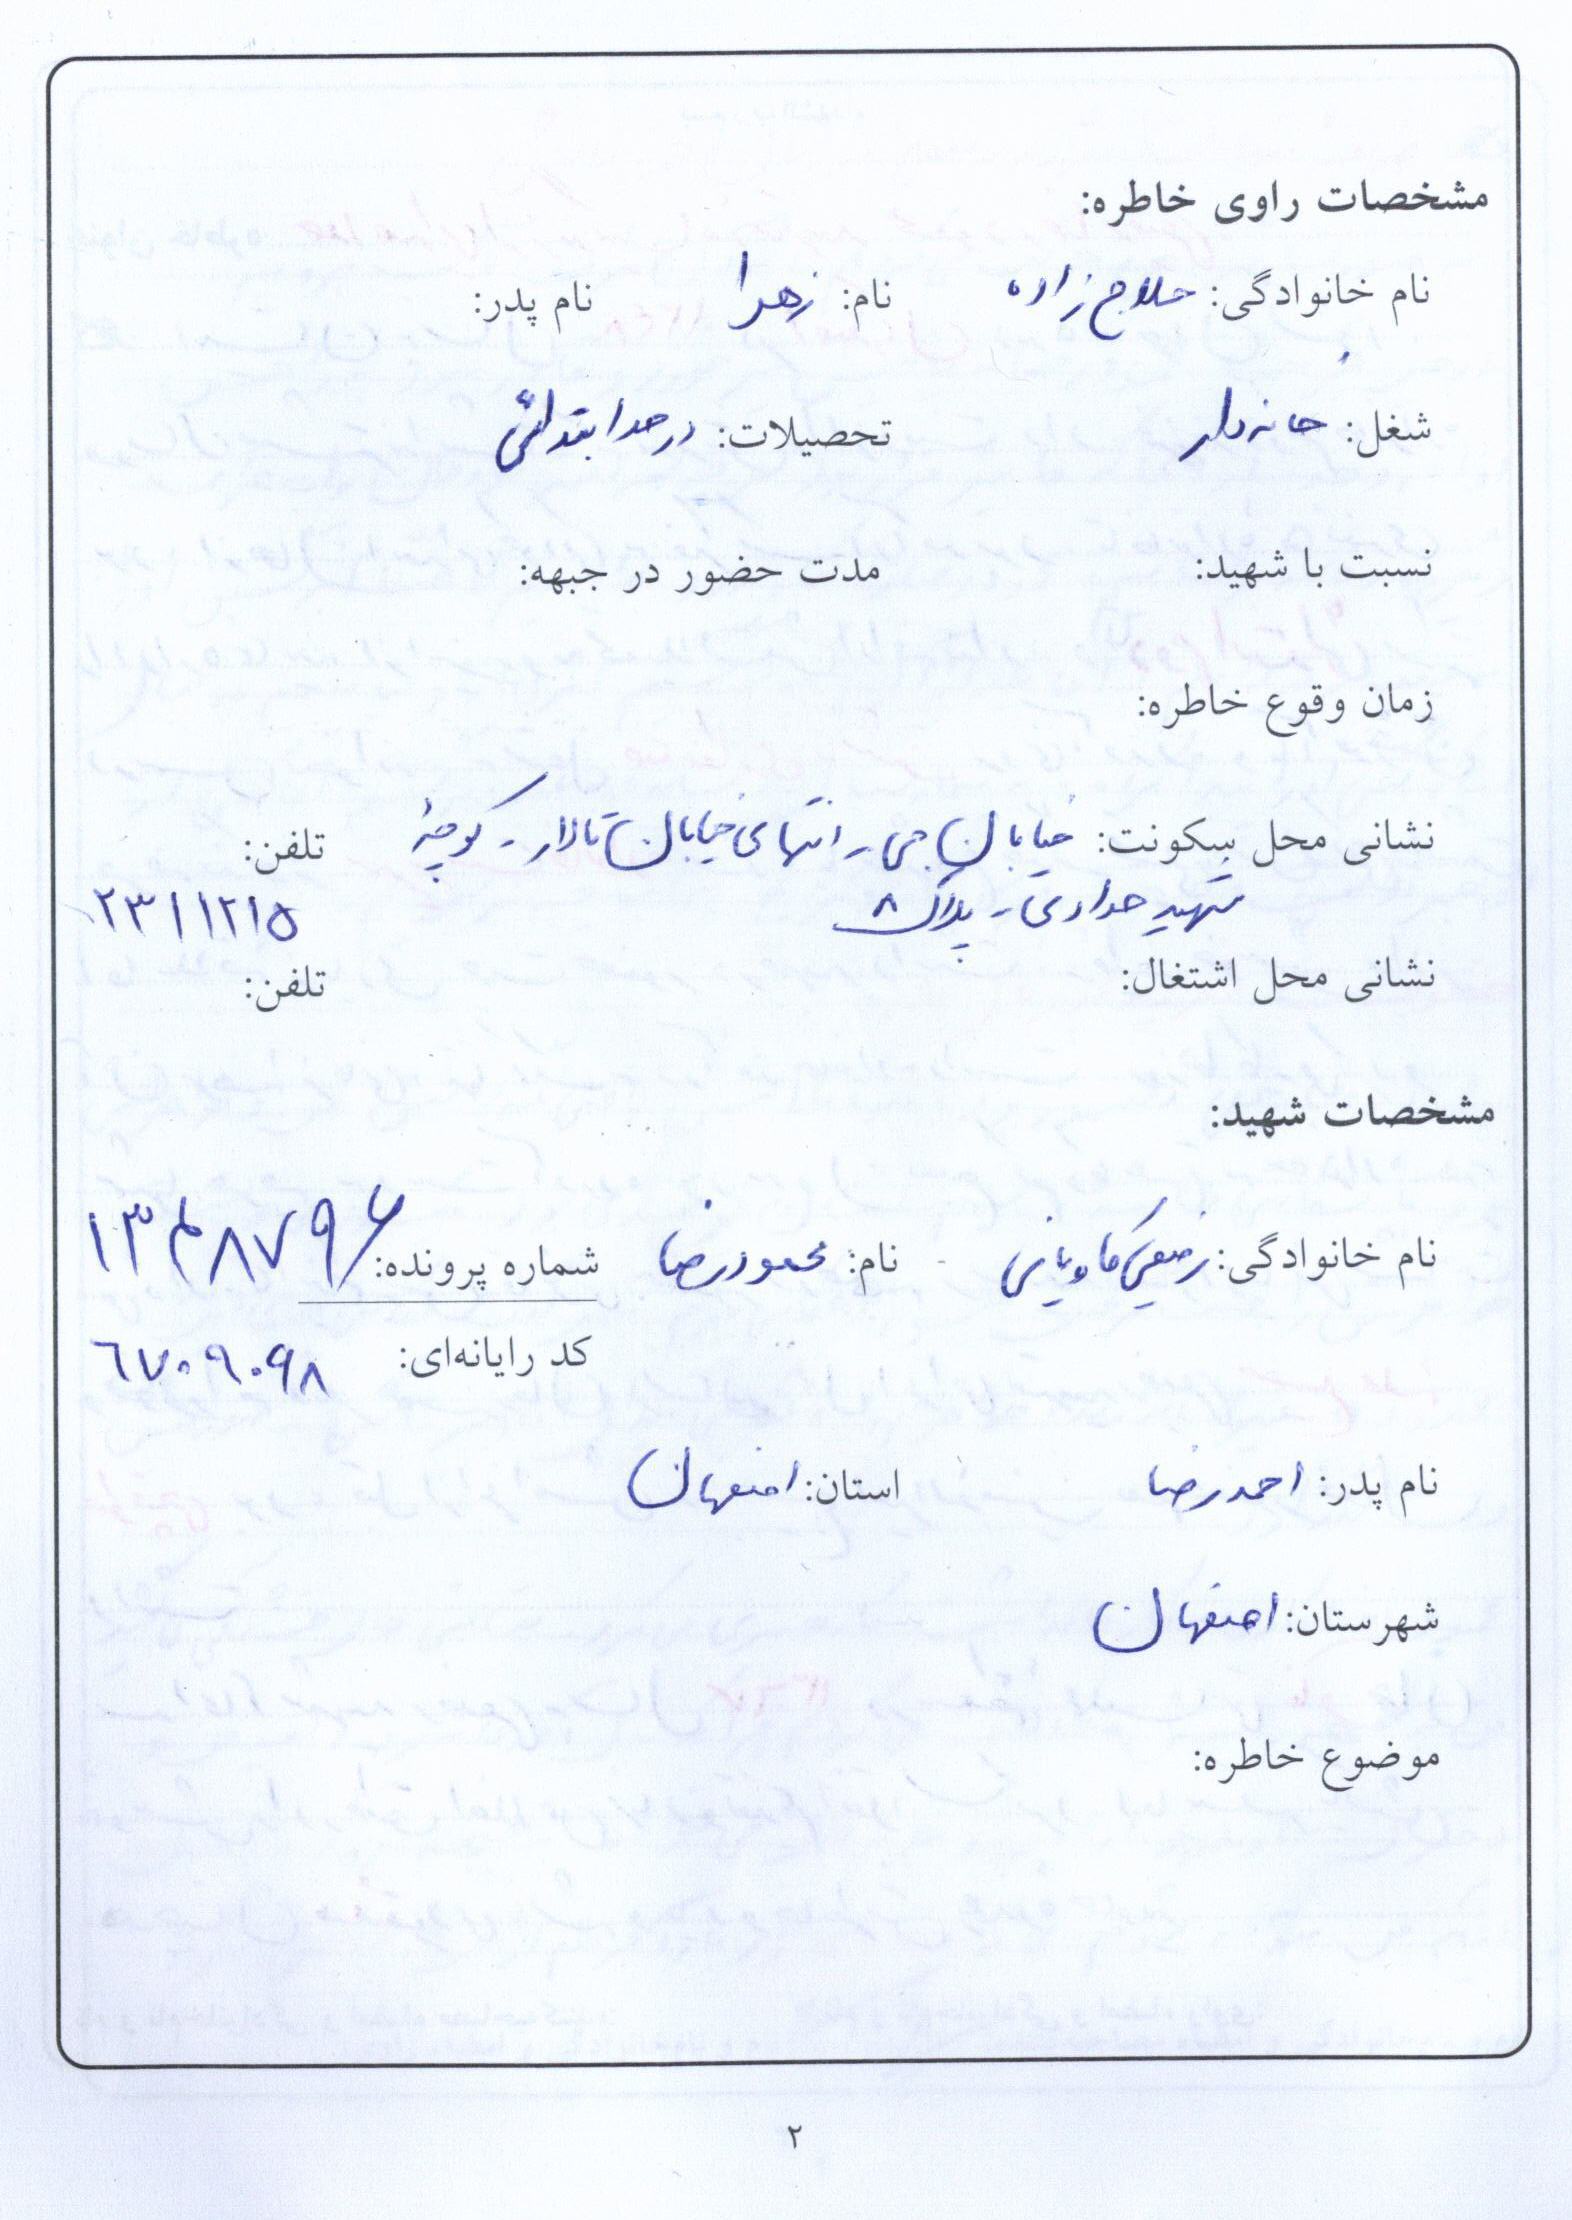 مشخصات راوی خاطره:
نام خانوادگی: حلاج زاده نام: زهرا نام پدر:
شغل: خانه دار تحصیلات: در حد ابتدائی
نسبت با شهید: مدت حضور در جبهه:
زمان وقوع خاطره:
نشانی محل سکونت: خیابان جی - انتهای خیابان تالار - کوچهٔ تلفن:
شهید حدادی - پلاک ۸ ۲۳۱۱۲۱۵
نشانی محل اشتغال: تلفن:
مشخصات شهید:
نام خانوادگی: نام: محمودرضا شماره پرونده: ۱۳۴۸۷۹۶
کد رایانه‌ای: ۶۷۰۹۰۹۸
نام پدر: احمدرضا استان: اصفهان
شهرستان: اصفهان
موضوع خاطره:
۲